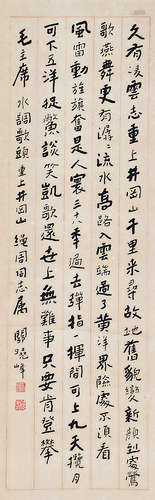 久有凌雲志重上井岡山千里来尋故地舊貌變新顔到處鶯
歌燕舞更有潺々流水高路入雲端過了黄洋界險處不須看
風雷動旌旗奮是人寰三十八年過去彈指一揮間可上九天攬月
可下五洋捉鱉談笑凱歌還世上無難事只要肯登攀
毛主席 水調歌頭重上井岡山 同志属 關曉峰